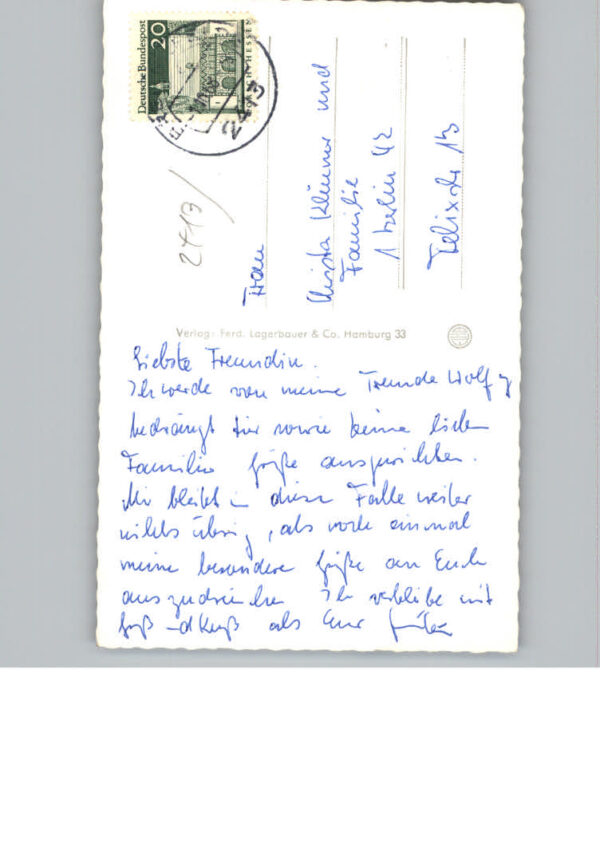 Deutsche Bundespost
20
HESSEN
2413
2413/
Frau
Christa Klemmer und
Familie
1 Berlin 42
Felixstr 13
Verlag: Ferd. Lagerbauer & Co. Hamburg 33
Liebste Freundin.
Ich werde von meine Freunde Wolf
bedrängt Dir sowie Deine lieben
Familie Grüße auszurichten.
Mir bleibt in diesen Falle weiter
nichts übrig, als noch einmal
meine besondere Grüße an Euch
auszudrücken Ich verbleibe mit
Gruß und Kuß als Eure Günter